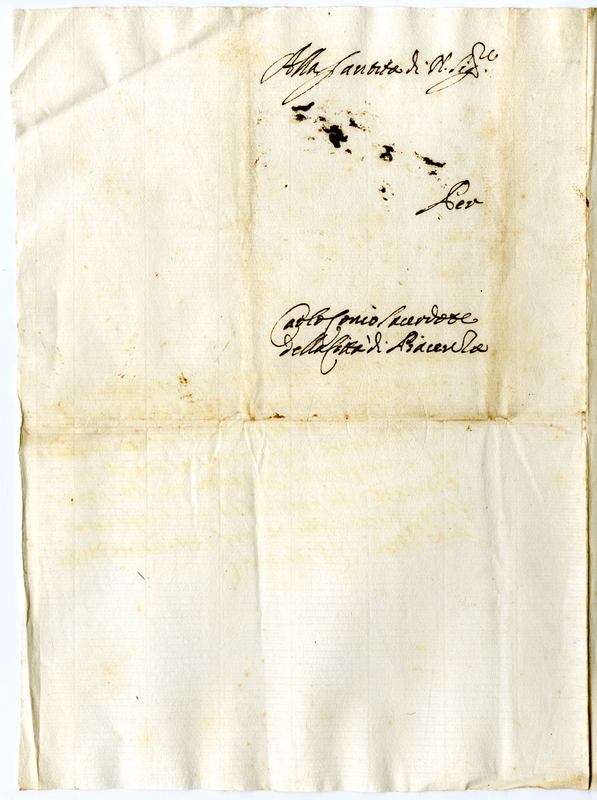 Alla Santità di N. Sig.re
Per
Carlo Conio Sacerdote
della Città di Piacenza